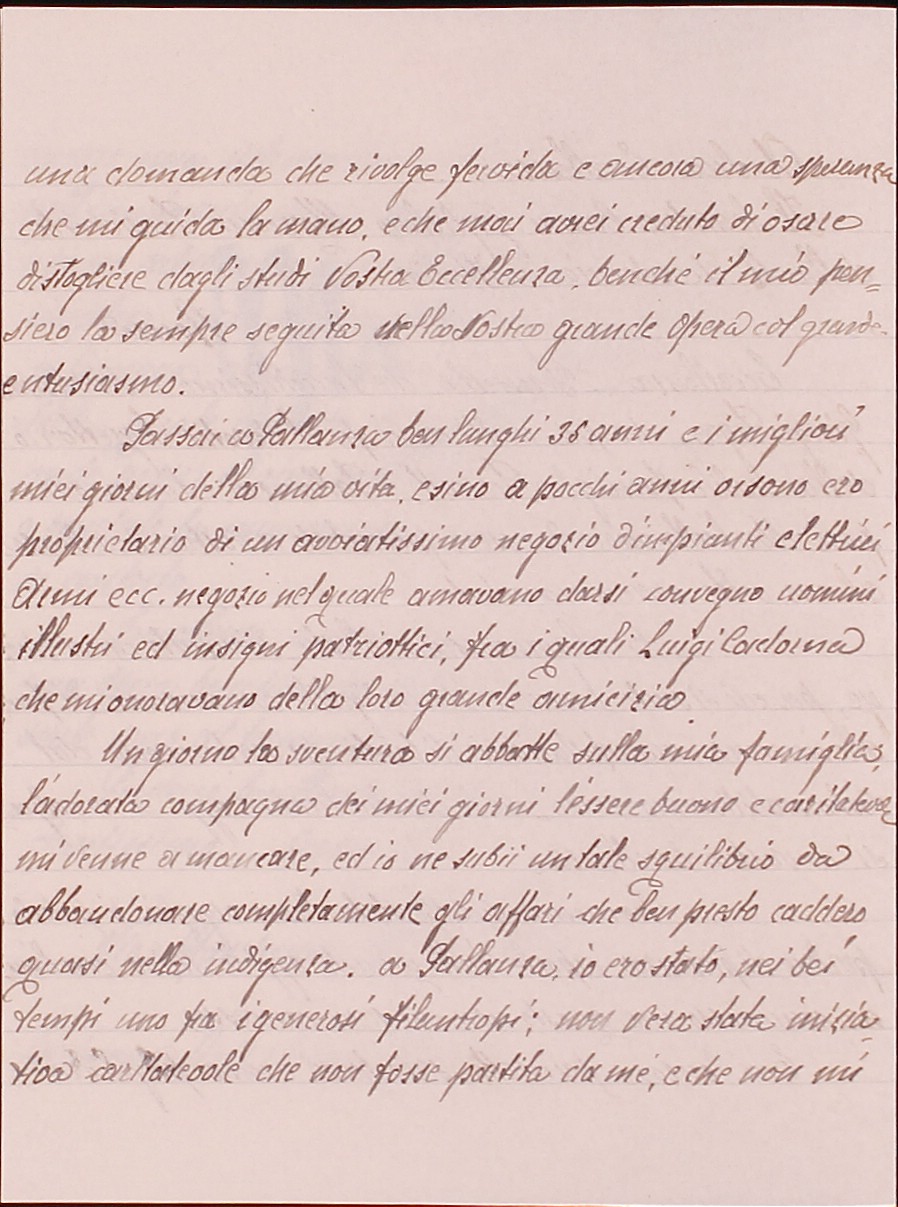 una domanda che rivolge fervida e ancora una speranza
che mi guida la mano, e che mai avrei creduto di osare
distogliere dagli studi Vostra Eccellenza, benché il mio pen=
siero la sempre seguita nella Vostra grande Opera col grande
entusiasmo.
Passai a Pallanza ben lunghi 35 anni e i migliori
miei giorni della mia vita, e sino a pocchi anni orsono ero
proprietario di un avviatissimo negozio d'impianti elettrici
Armi ecc. negozio nel quale amavano darsi convegno uomini
illustri ed insigni patriottici, fra i quali Luigi Cadorna
che mi onoravano della loro grande amicizia.
Un giorno la sventura si abbatte sulla mia famiglia,
l'adorata compagna dei miei giorni l'essere buono e caritatevole
mi venne a mancare, ed io ne subii un tale squilibrio da
abbandonare completamente gli affari che ben presto caddero
quasi nella indigenza. a Pallanza, io ero stato, nei bei
tempi uno fra i generosi filantropi; non v'era stata inizia=
tiva caritatevole che non fosse partita da me, e che non mi